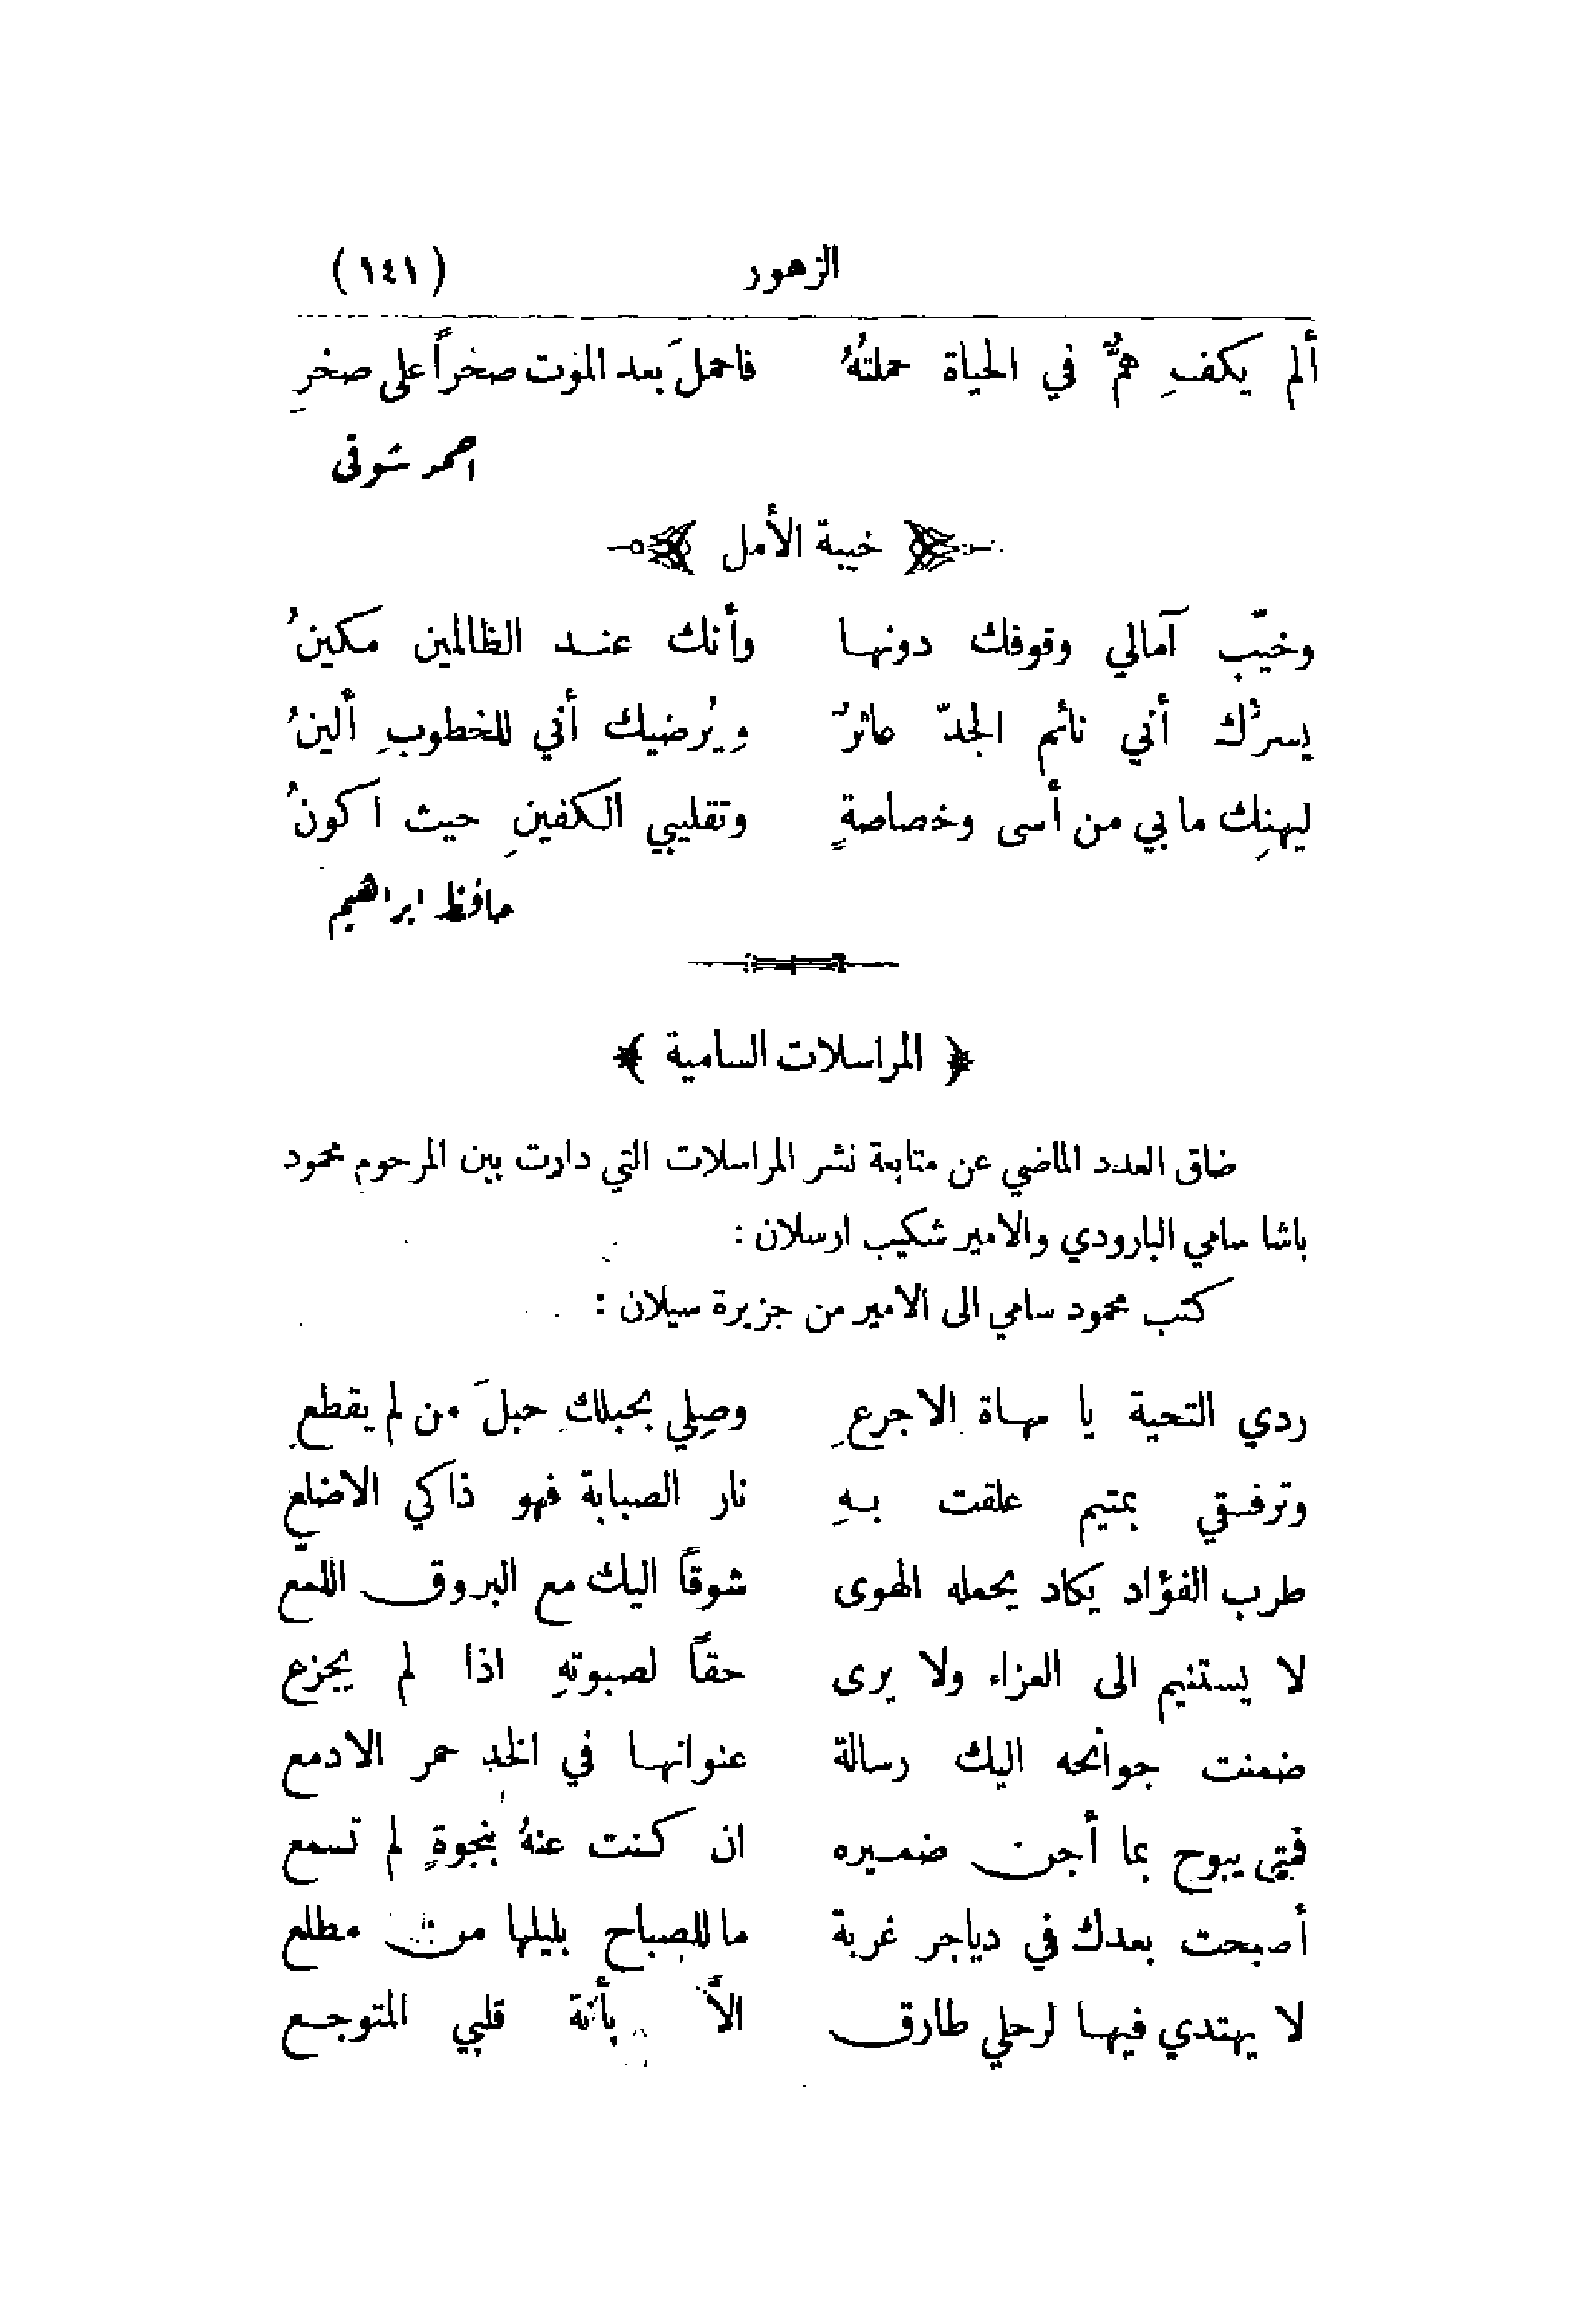 الزهور (١٤١)
ألم يكفِ همٌّ في الحياة حملتُهُ فاحملَ بعد الموت صخراً على صخرِ
احمد شوقى
خيبة الأمل
وخيّب آمالي وقوفك دونها وأنك عند الظالمين مكينُ
يسرُّك أني نائم الجدّ عاثرٌ ويُرضيك أني للخطوبِ ألينُ
ليهنِك ما بي من أسى وخصاصةٍ وتقليبي الكفينِ حيث اكونُ
حافظ ابراهيم
﴿ المراسلات السامية ﴾
ضاق العدد الماضي عن متابعة نشر المراسلات التي دارت بين المرحوم محمود
باشا سامي البارودي والامير شكيب ارسلان :
كتب محمود سامي الى الامير من جزيرة سيلان :
ردي التحية يا مهاة الاجرعِ وصِلي بحبلكِ حبلَ من لم يقطعِ
وترفقي بمتيم علقت بهِ نار الصبابة فهو ذاكي الاضلعِ
طرب الفؤاد يكاد يحمله الهوى شوقاً اليك مع البروق اللمع
لا يستنيم الى العزاء ولا يرى حقاً لصبوتهِ اذا لم يجزع
ضمنت جوانحه اليك رسالة عنوانها في الخد حمر الادمع
فمتى يبوح بما أجن ضميره ان كنت عنهُ بنجوةٍ لم تسمع
أصبحت بعدك في دياجر غربة ما للصباح بليلها من مطلع
لا يهتدي فيها لرحلي طارق الاَّ بأنة قلبي المتوجع